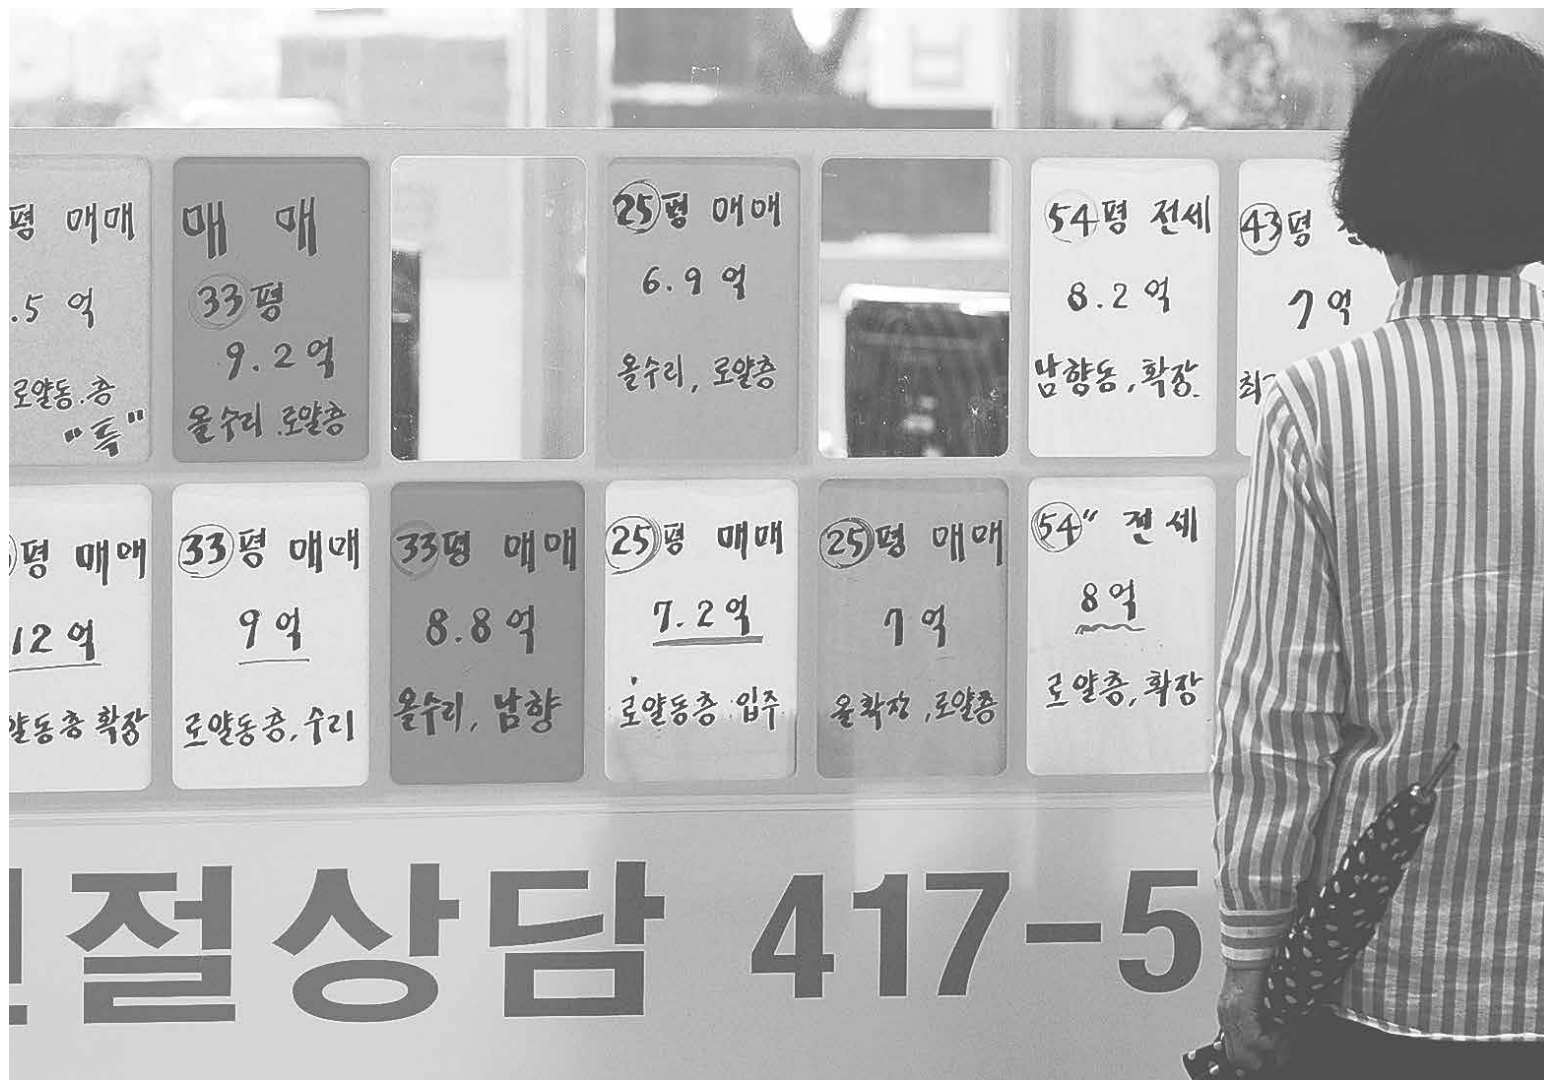 평 매매
.5 억
로얄동.층
"특"
매 매
33평
9.2억
올수리.로얄층
25평 매매
6.9억
올수리, 로얄층
54평 전세
8.2억
남향동, 확장.
43평
7억
최
평 매매
12억
얄동층 확장
33평 매매
9억
로얄동층, 수리
33평 매매
8.8억
올수리, 남향
25평 매매
7.2억
로얄동층 입주
25평 매매
7억
올확장, 로얄층
54" 전세
8억
로얄층, 확장
절상담 417-5